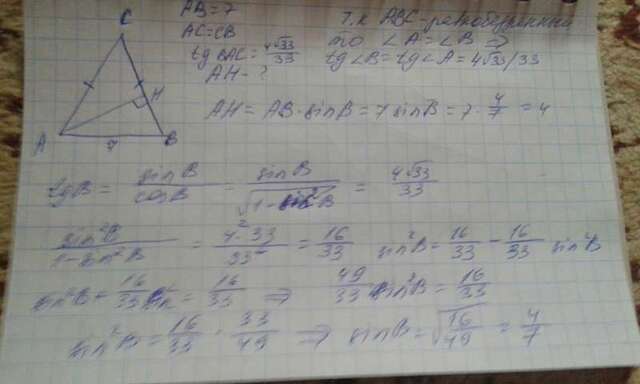 C
AB=7
AC=CB
tg BAC = 4√33/33
AH - ?
Т.к ABC - равнобедренный
то ∠A = ∠B ⇒
tg∠B = tg∠A = 4√33/33
H
A 7 B
AH = AB · sin B = 7 sin B = 7 · 4/7 = 4
tg B = sin B / cos B = sin B / √(1 - sin²B) = 4√33/33
sin²B / (1 - sin²B) = 4² · 33 / 33² = 16/33 sin²B = 16/33 - 16/33 sin²B
sin²B + 16/33 sin² = 16/33 ⇒ 49/33 sin²B = 16/33
sin²B = 16/33 · 33/49 ⇒ sin B = √(16/49) = 4/7